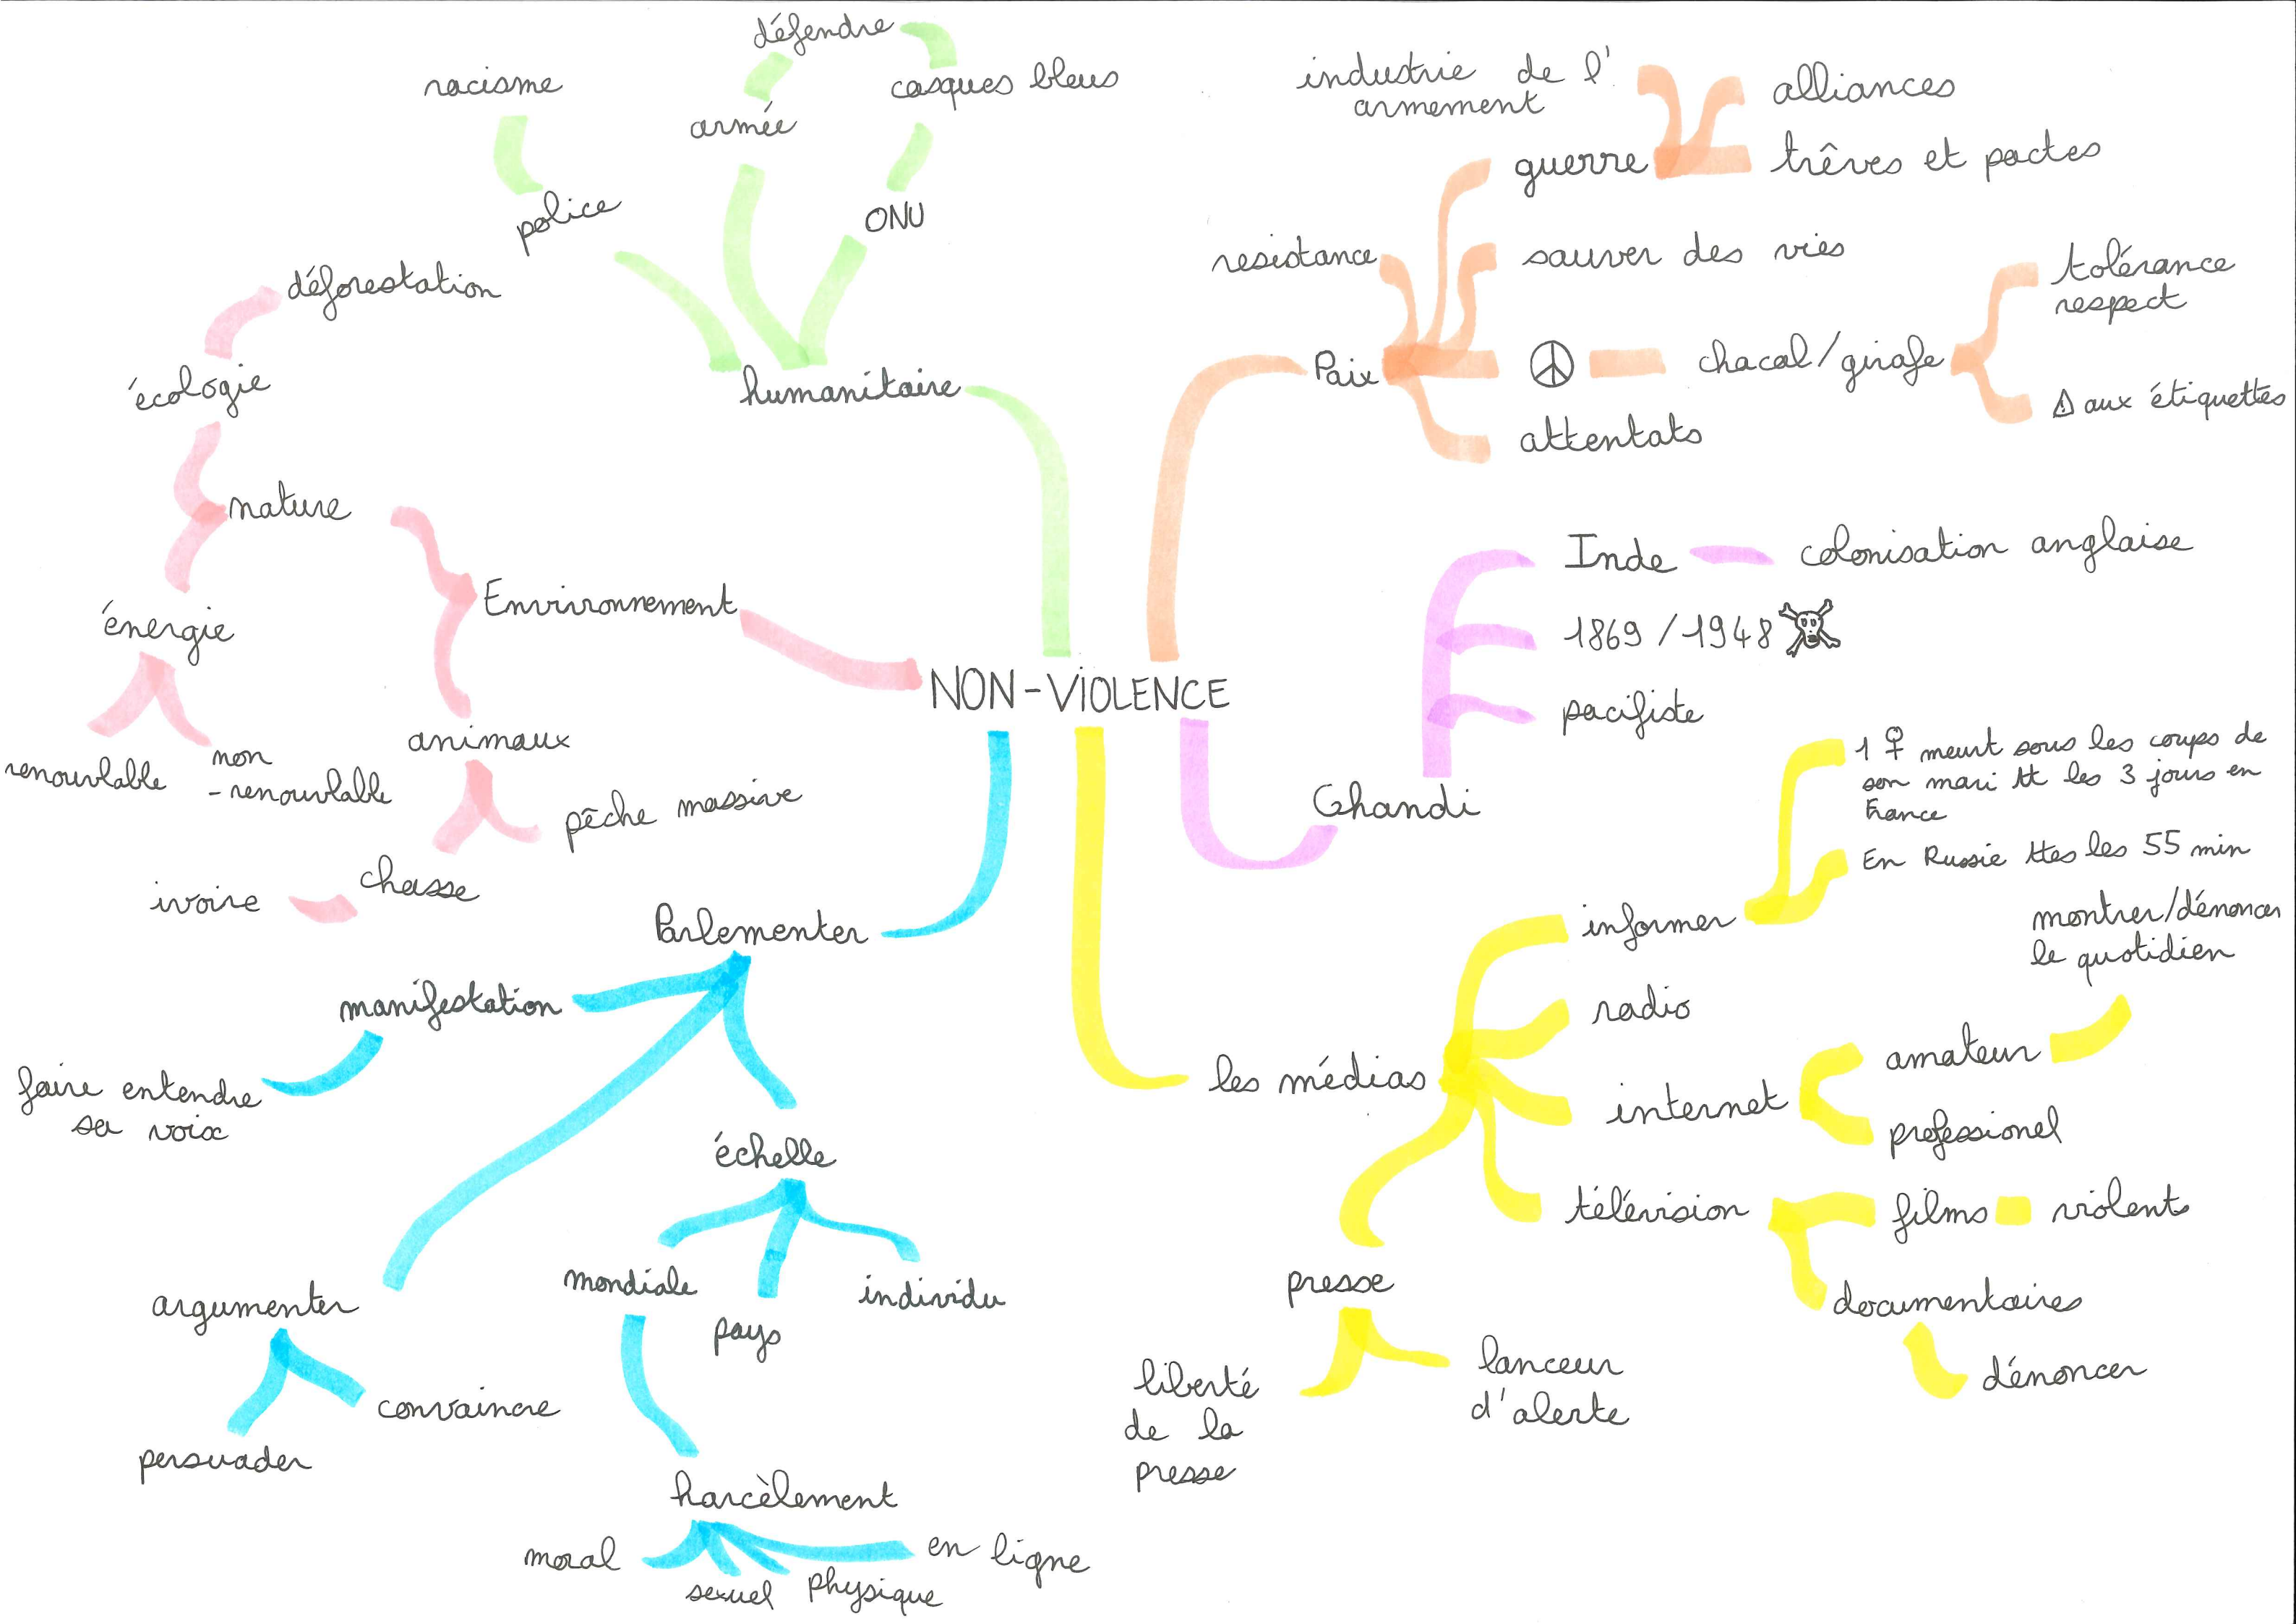 NON-VIOLENCE
humanitaire
police
racisme
armée
défendre
casques bleus
ONU
Paix
resistance
guerre
industrie de l'
armement
alliances
trêves et pactes
sauver des vies
chacal/girafe
tolérance
respect
aux étiquettes
attentats
Ghandi
Inde
colonisation anglaise
1869/1948
pacifiste
les médias
informer
1 ♀ meurt sous les coups de
son mari tt les 3 jours en
France
En Russie ttes les 55 min
radio
internet
amateur
montrer/dénoncer
le quotidien
professionel
télévision
films
violents
documentaires
dénoncer
presse
liberté
de la
presse
lanceur
d'alerte
Parlementer
manifestation
faire entendre
sa voix
argumenter
persuader
convaincre
échelle
mondiale
pays
individu
harcèlement
moral
sexuel
physique
en ligne
Environnement
nature
écologie
déforestation
énergie
renouvlable
non
-renouvlable
animaux
chasse
ivoire
pêche massive